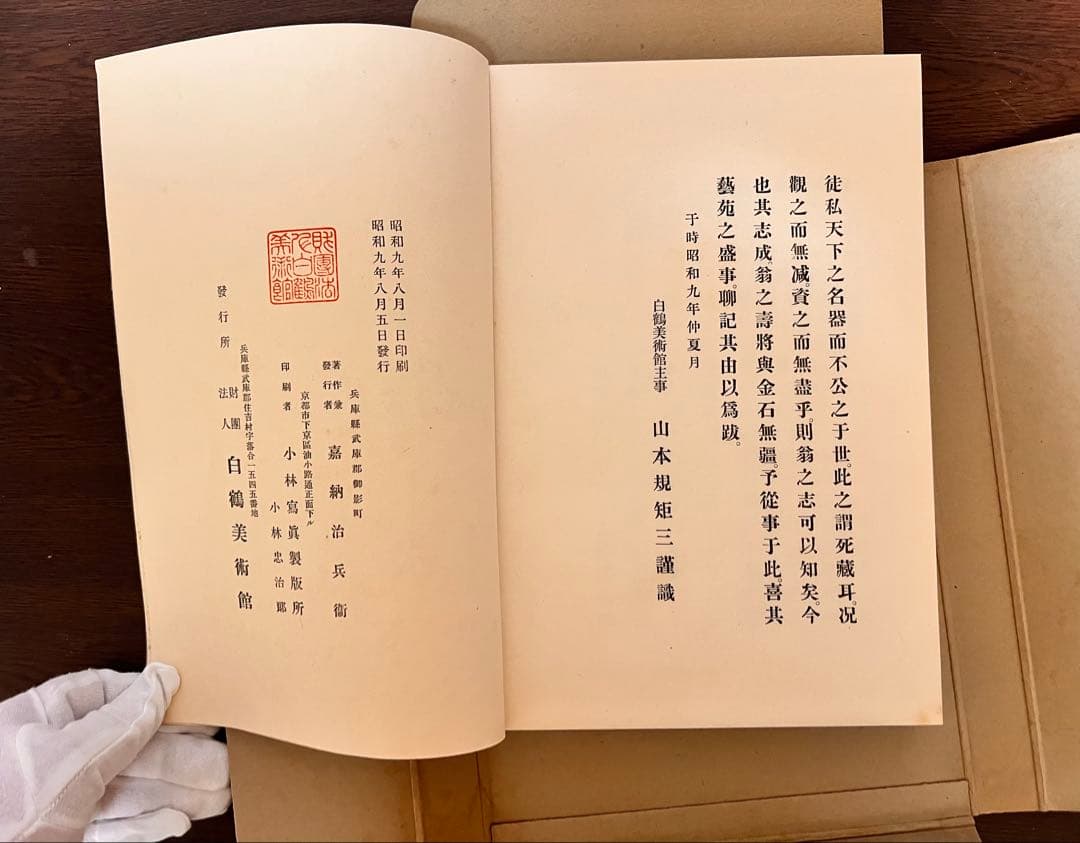 徒私天下之名器而不公之于世。此之謂死藏耳。况
觀之而無減。資之而無盡乎。則翁之志可以知矣。今
也其志成。翁之壽將與金石無疆。予從事于此。喜其
藝苑之盛事。聊記其由以爲跋。
于時昭和九年仲夏月
白鶴美術館主事 山本規矩三謹識
昭和九年八月一日印刷
昭和九年八月五日發行
兵庫縣武庫郡御影町
著作兼發行者 嘉納治兵衞
京都市下京區油小路通正面下ル
印刷者 小林寫眞製版所
小林忠治郎
財團法人白鶴美術館
兵庫縣武庫郡住吉村字落合一五四五番地
發行所 財團法人 白鶴美術館